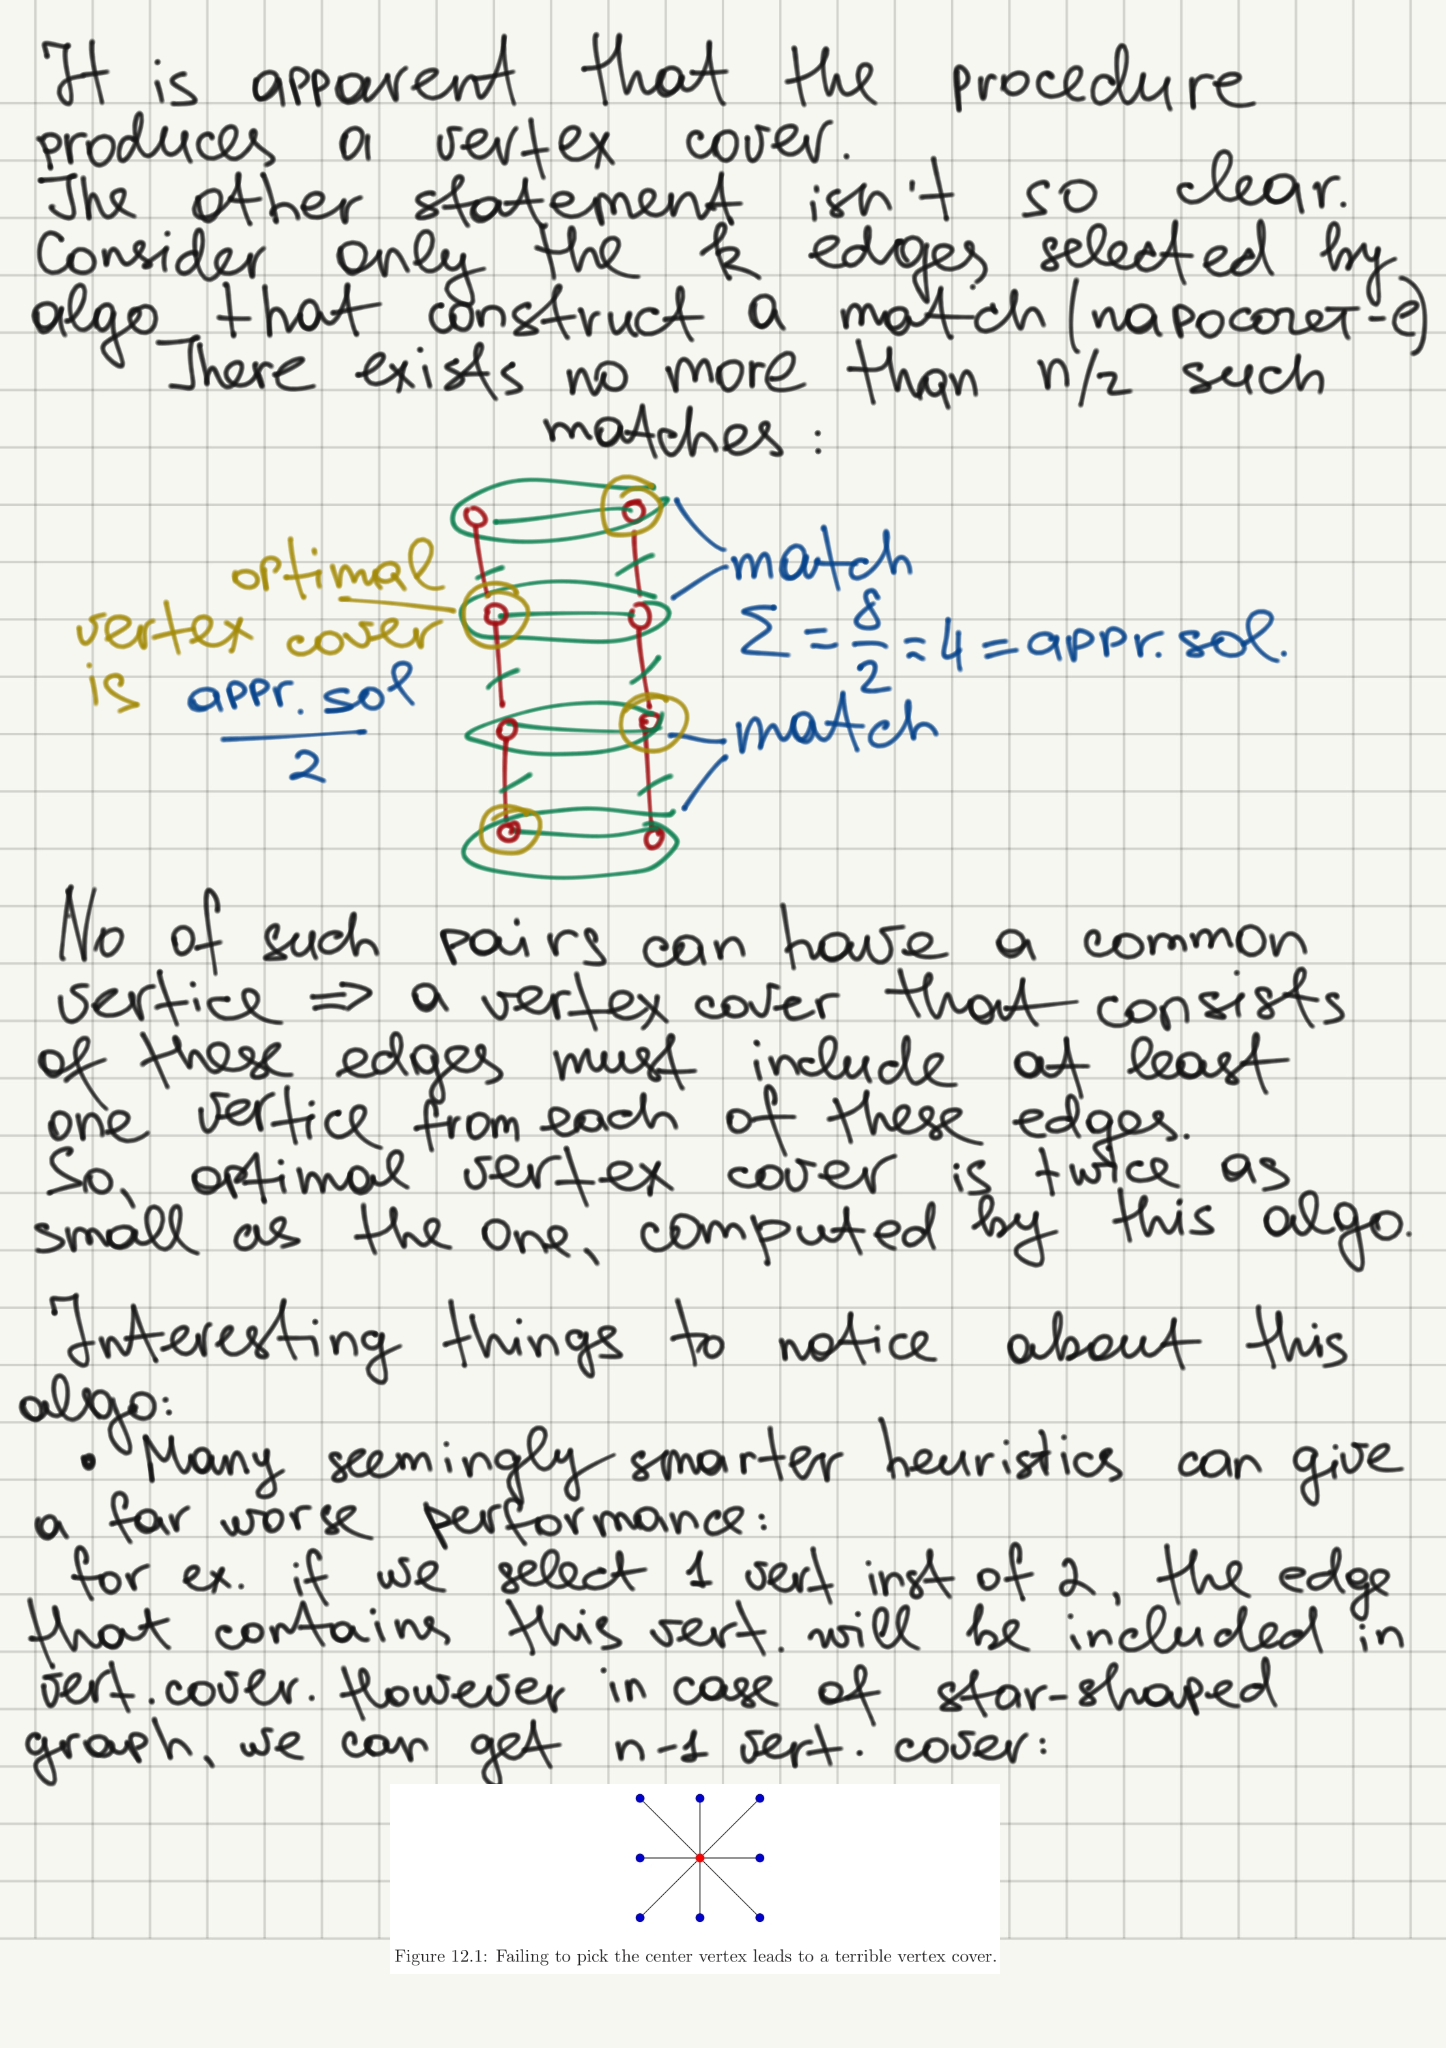 It is apparent that the procedure
produces a vertex cover.
The other statement isn't so clear.
Consider only the k edges selected by
algo that construct a match (паросочет-е)
There exists no more than n/2 such
matches:
optimal
vertex cover
is appr. sol
2
match
Σ = 8/2 = 4 = appr. sol.
match
No of such pairs can have a common
vertice => a vertex cover that consists
of these edges must include at least
one vertice from each of these edges.
So, optimal vertex cover is twice as
small as the one, computed by this algo.
Interesting things to notice about this
algo:
• Many seemingly smarter heuristics can give
a far worse performance:
for ex. if we select 1 vert inst of 2, the edge
that contains this vert. will be included in
vert. cover. However in case of star-shaped
graph, we can get n-1 vert. cover:
Figure 12.1: Failing to pick the center vertex leads to a terrible vertex cover.